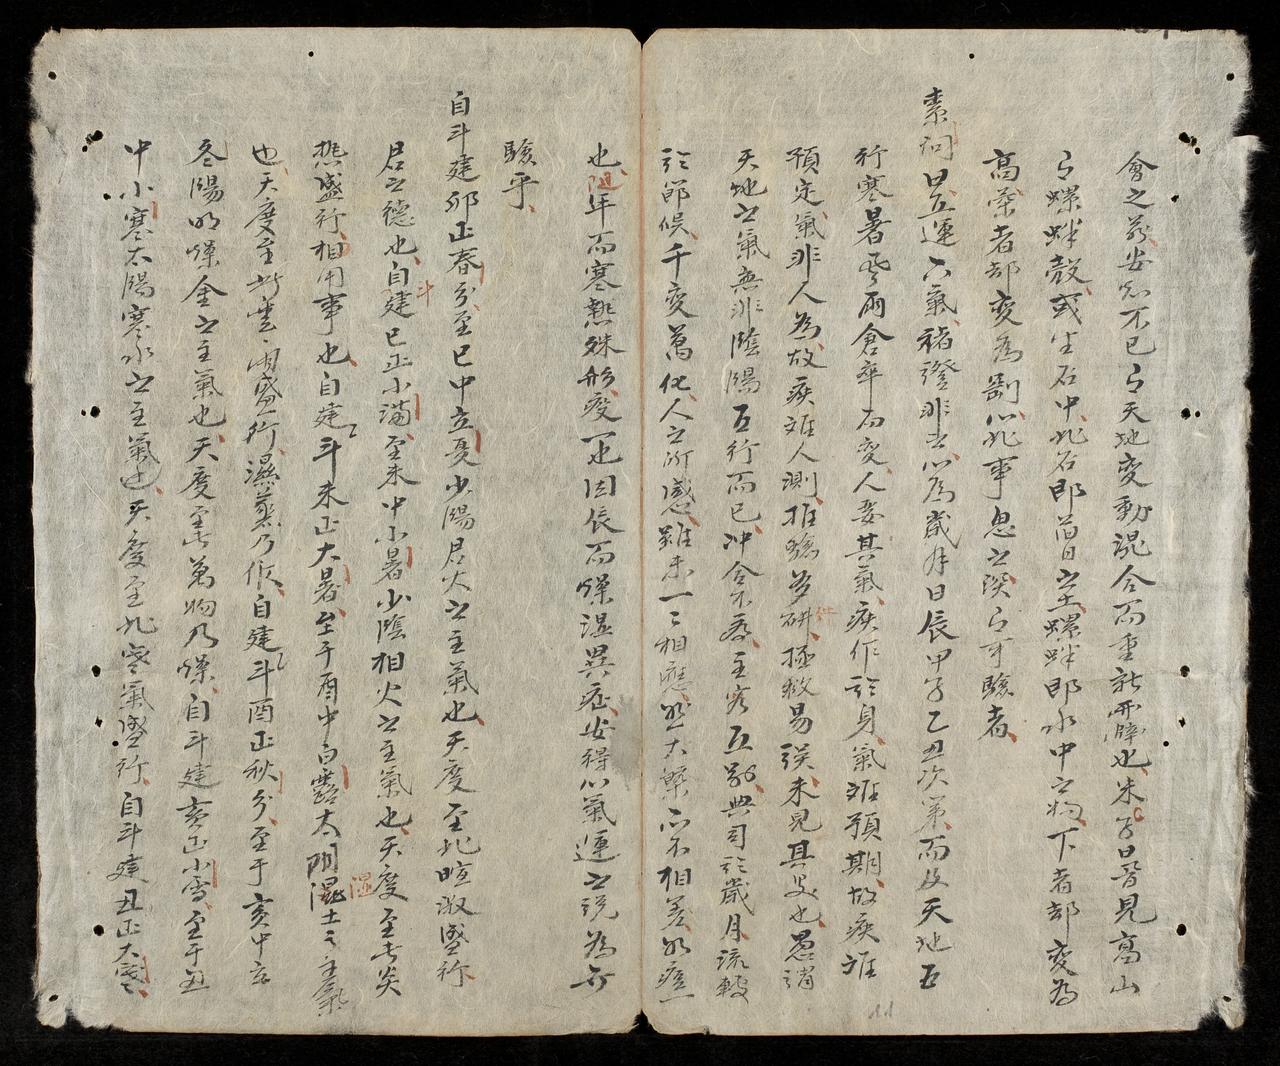 會之前安知不已与天地變動混合而重新開闢也朱子曰嘗見高山
与螺蚌殼或生石中此石即旧日之土螺蚌即水中之物下者却變為
高柔者却變為剛此事思之深与可驗者
素问曰五運六氣褚澄非之以為歲月日辰甲子乙丑次第而及天地五
行寒暑風雨倉卒而變人嬰其氣疾作於身氣难預期故疾难
預定氣非人為故疾难人測推驗多研拯救易誤未見其是也愚謂
天地之氣無非陰陽五行而已冲合不爲主客互相興司於歲月流轂
於節候千變萬化人之所感雖未一々相應然大槩亦不相差如瘧一
也昭年而寒熱殊形疫一也因辰而燥湿異症安得以氣運之説為不
驗乎
自斗建卯正春分至巳中立夏少陽君火之主氣也天度至此暄淑盛行
君之德也自斗建巳正小滿至未中小暑少陰相火之主氣也天度至此炎
热盛行相用事也自建斗未正大暑至于酉中白露太阴湿土之主氣
也天度至此雲雨盛行濕蒸乃作自建斗酉正秋分至于亥中立
冬陽明燥金之主氣也天度至此萬物乃燥自斗建亥正小雪至于丑
中小寒太陽寒水之主氣也天度至此寒氣盛行自斗建丑正大寒